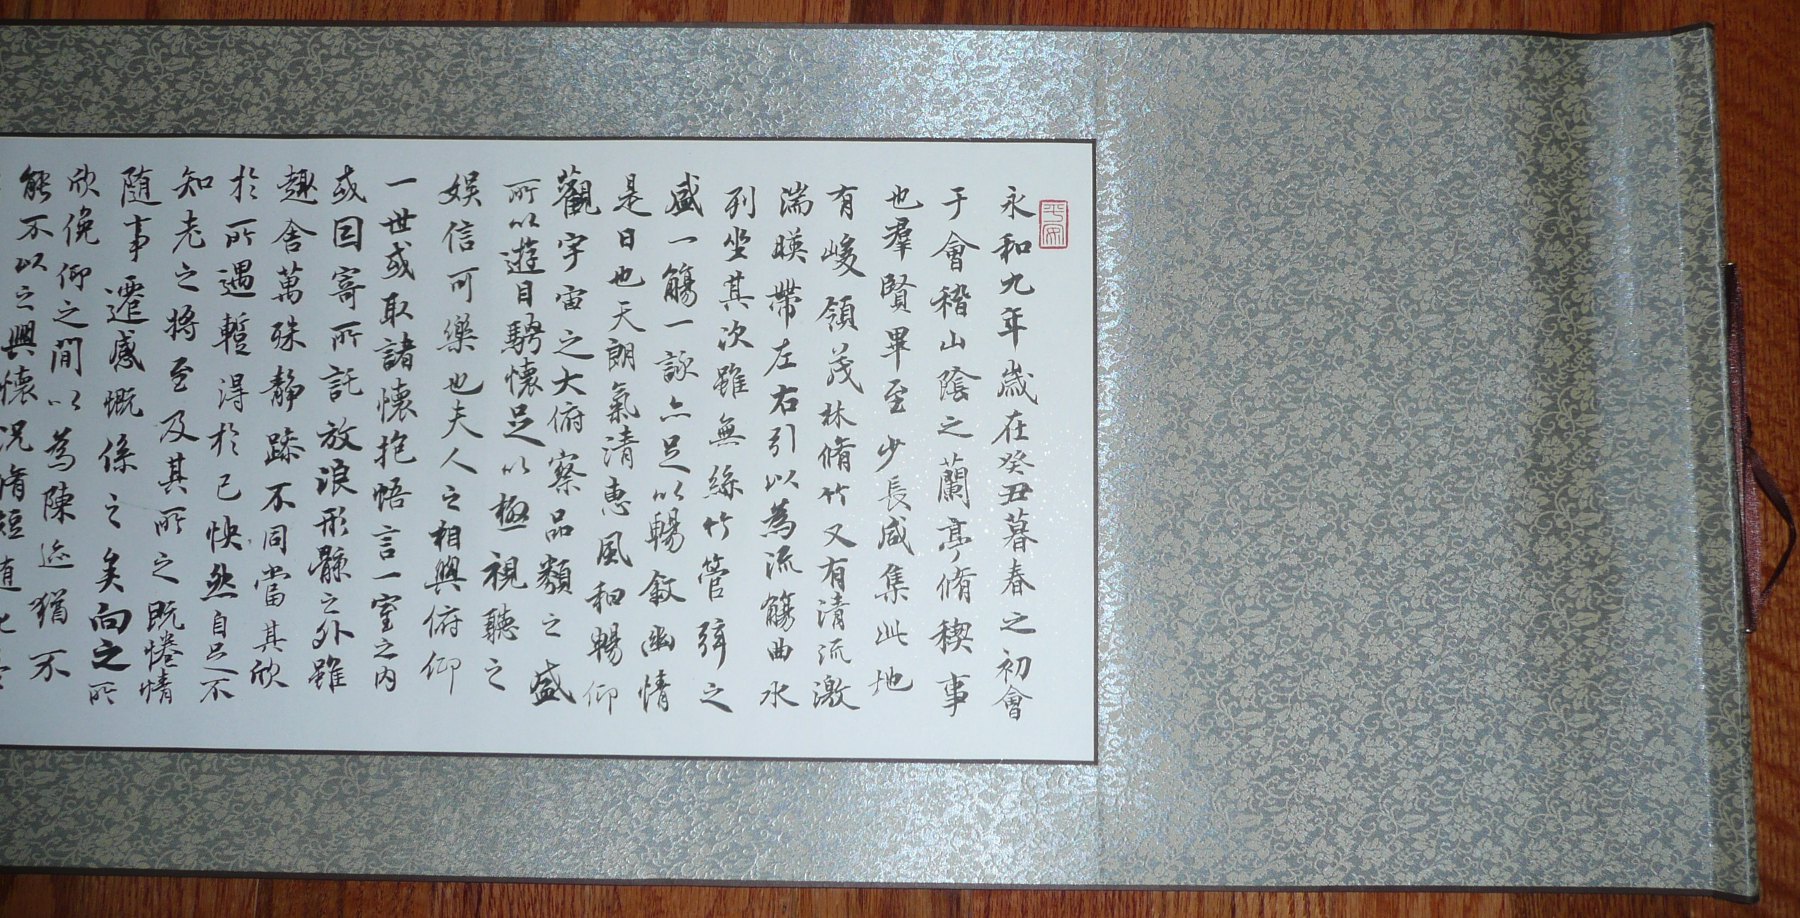 平安
永和九年歲在癸丑暮春之初會
于會稽山陰之蘭亭脩稧事
也羣賢畢至少長咸集此地
有峻領茂林脩竹又有清流激
湍暎帶左右引以為流觴曲水
列坐其次雖無絲竹管弦之
盛一觴一詠亦足以暢敘幽情
是日也天朗氣清惠風和暢仰
觀宇宙之大俯察品類之盛
所以遊目騁懷足以極視聽之
娛信可樂也夫人之相與俯仰
一世或取諸懷抱悟言一室之內
或因寄所託放浪形骸之外雖
趣舍萬殊靜躁不同當其欣
於所遇暫得於己怏然自足不
知老之將至及其所之既惓情
隨事遷感慨係之矣向之所
欣俛仰之間以為陳迹猶不
能不以之興懷況脩短隨化